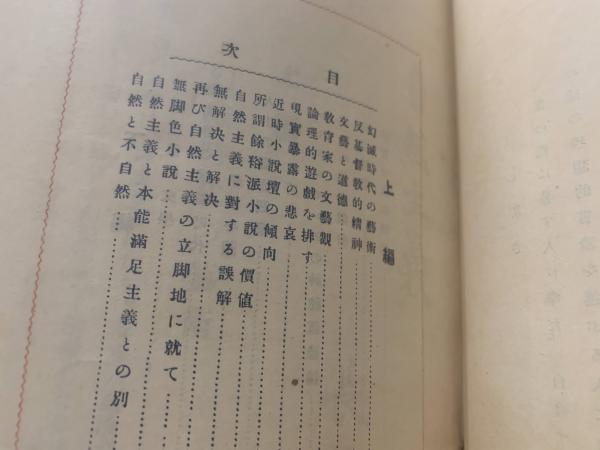 目次
上編
幻滅時代の藝術
反基督教的精神
文藝と道德
敎育家の文藝觀
論理的遊戲を排す
現實暴露の悲哀
近時小說壇の傾向
所謂餘裕派小說の價値
自然主義に對する誤解
無解決と解決
再び自然主義の立脚地に就て
無脚色小說
自然主義と本能滿足主義との別
自然と不自然